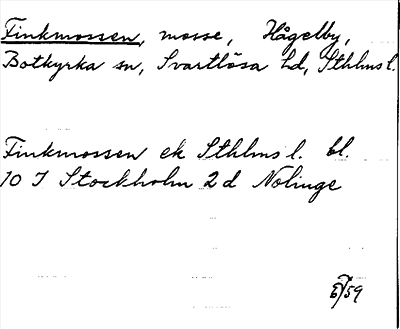 Finkmossen, mosse, Hågelby,
Botkyrka sn, Svartlösa hd, Sthlms l.
Finkmossen ek Sthlms l. bl.
10 I Stockholm 2 d Nolinge